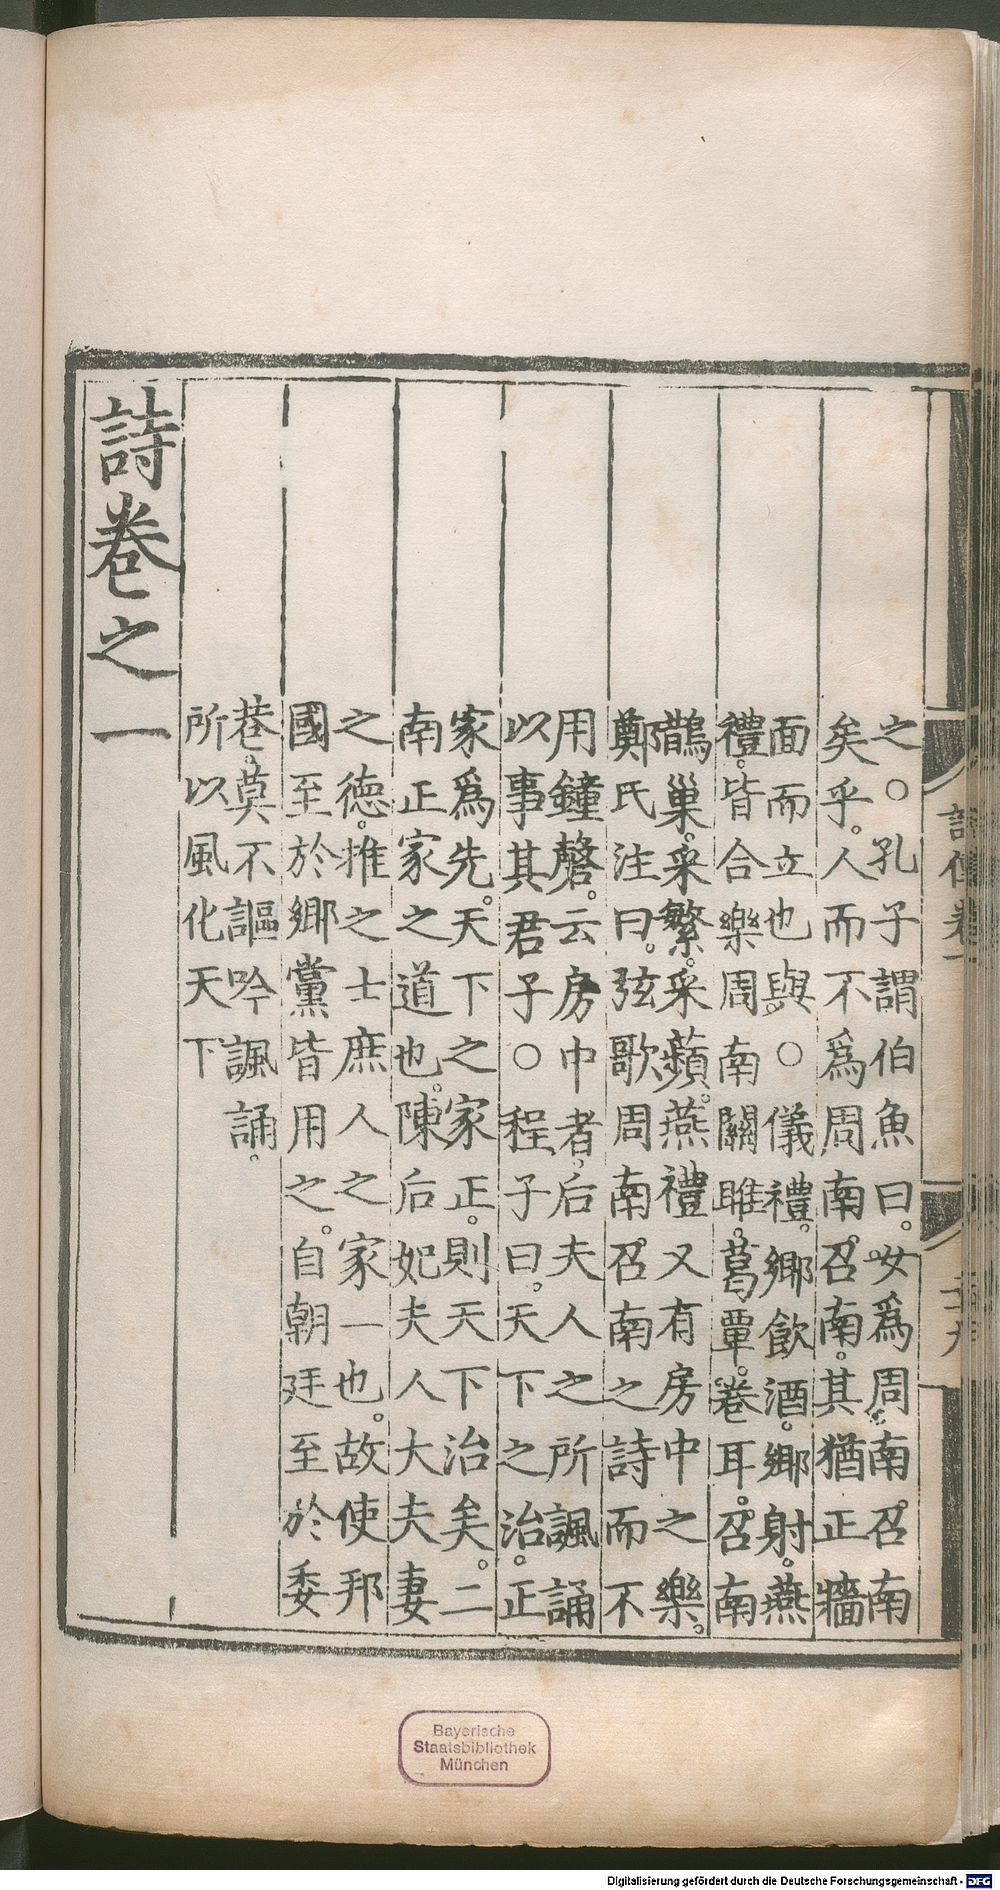 之○孔子謂伯魚曰。女爲周南召南
矣乎。人而不爲周南。召南。其猶正牆
面而立也與。○儀禮。鄉飲酒。鄉射。燕
禮。皆合樂周南關雎。葛覃。卷耳。召南
鵲巢。采蘩。采蘋。燕禮又有房中之樂。
鄭氏注曰。弦歌周南。召南之詩而不
用鐘磬。云房中者。后夫人之所諷誦
以事其君子○程子曰。天下之治。正
家爲先。天下之家正。則天下治矣。二
南正家之道也。陳后妃夫人大夫妻
之德。推之士庶人之家一也。故使邦
國至於鄉黨皆用之。自朝廷至於委
巷。莫不謳吟諷誦。
所以風化天下
詩卷之一
詩傳卷一
Bayerische
Staatsbibliothek
München
Digitalisierung gefördert durch die Deutsche Forschungsgemeinschaft - DFG